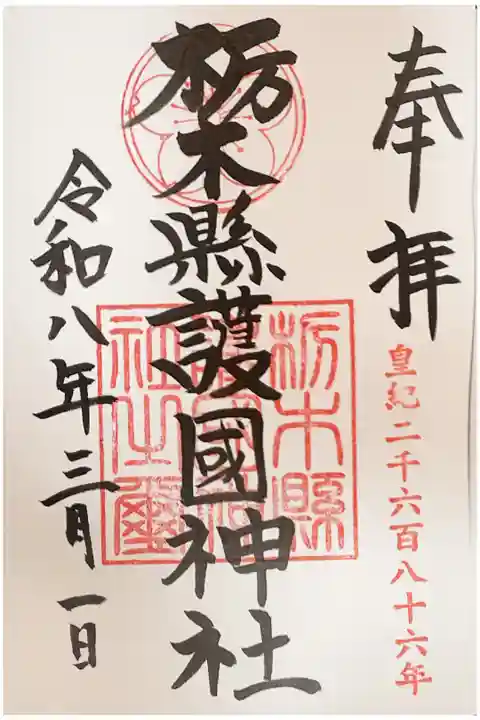 奉拝
皇紀二千六百八十六年
栃木縣護國神社
栃木縣
護國神
社之璽
令和八年三月一日